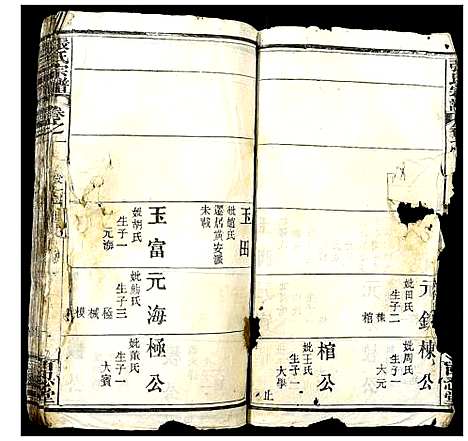 元
妣田氏
生子二
棟
棺
棟公
妣周氏
生子一
大元
棺公
妣王氏
生子一
大學
止
玉田
妣趙氏
遷居黃安派
未載
玉富
妣胡氏
生子一
元海
元海
生子三
極
棫
極公
妣董氏
生子一
大賓
張氏宗譜
卷之一